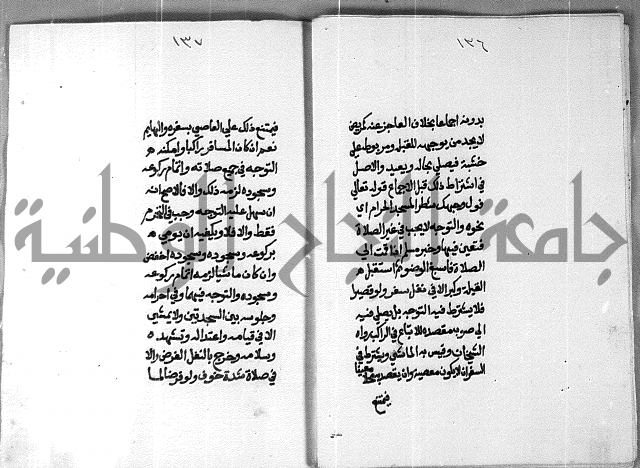 ١٣٦
بدونه اجماعا بخلاف العاجز عنه كمريض
لا يجد من يوجهه للقبلة ومربوط على
خشبة فيصلي بحاله ويعيد والاصل
في اشتراط ذلك قبل الاجماع قوله تعالى
فول وجهك شطر المسجد الحرام اي
نحوه والتوجه لا يجب في غير الصلاة
فتعين فيها وخبر مسلم اذا قمت الى
الصلاة فاسبغ الوضوء ثم استقبل
القبلة وكبر الا في نفل سفر ولو قصيرا
فلا يشترط فيه التوجه بل يصلي فيه
الى صوب مقصده للاتباع في الراكب رواه
الشيخان وقيس به الماشي ويشترط في
السفر ان لا يكون معصية وان يقصد محلا معينا
فيمتنع
١٣٧
فيمتنع ذلك على العاصي بسفره والهايم
نعم ان كان المسافر راكبا وامكنه
التوجه في جميع صلاته واتمام ركوعه
وسجوده لزمه ذلك والا فالاصح انه
ان سهل عليه التوجه وجب في التحرم
فقط والا فلا ويلفيه ان يومي
بركوعه وسجوده وسجوده اخفض
وان كان ماشيا لزمه اتمام ركوعه
وسجوده والتوجه فيهما وفي احرامه
وجلوسه بين السجدتين ولا يمشي
الا في قيامه واعتداله وتشهده
وسلامه وخرج بالنفل الفرض والا
في صلاة شدة خوف ولو فرضا لما
جامعة النجاح الوطنية